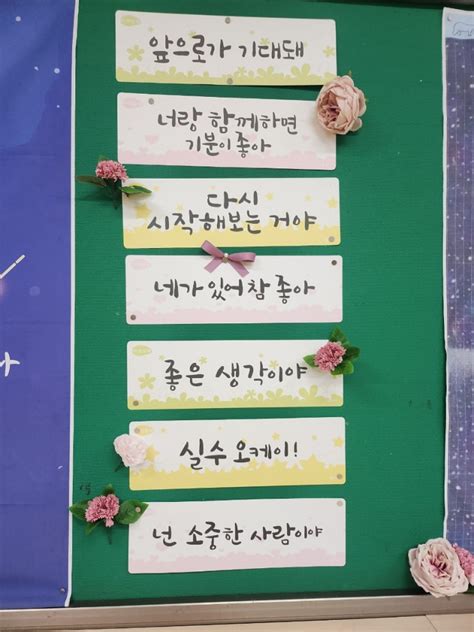 앞으로가 기대돼
너랑 함께하면
기분이 좋아
다시
시작해보는 거야
네가 있어 참 좋아
좋은 생각이야
실수 오케이!
넌 소중한 사람이야